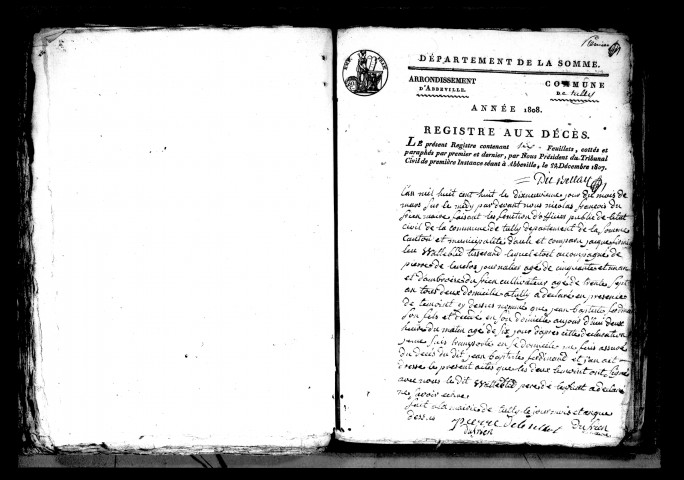 Premier
DÉPARTEMENT DE LA SOMME.
ARRONDISSEMENT
D'ABBEVILLE.
COMMUNE
DE tully
ANNÉE 1808.
REGISTRE AUX DÉCÈS.
LE présent Registre contenant six Feuillets, cottés et
paraphés par premier et dernier, par Nous Président du Tribunal
Civil de première Instance séant à Abbeville, le 22 Décembre 1807.
L'an mil huit cent huit le dixneuvieme jour du mois de
mars sur le midy pardevant nous nicolas francois du
frien maire faisant les fonction d'officier public de l'etat
civil de la commune de tully departement de la somme
Canton et municipalité d'ault est comparu jaque
Watteblé tisserand lequel etoit accompagné de
pierre de journalier agé de cinquante et un an
et d'ambroise du frien cultivateur agé de trente sept
an tous deux domicilié a tully a declaré en presence
de temoint cy dessus nommé que jean baptiste ferdinand
son fils est decedé en son domicile aujourd'hui deux
heure du matin agé de six jour d'apres cette declaration
je me suis transporté en se domicile me suis assuré
du deces du dit jean baptiste ferdinand et j'en ait
dressé le present acte que les deux temoint ont signé
avec nous le dit Watteblé pere de l'enfant a declaré
ne savoir ecrire
fait a la mairie de tully le jour mois et an que
dessus
pierre
du frien
du frien
maire